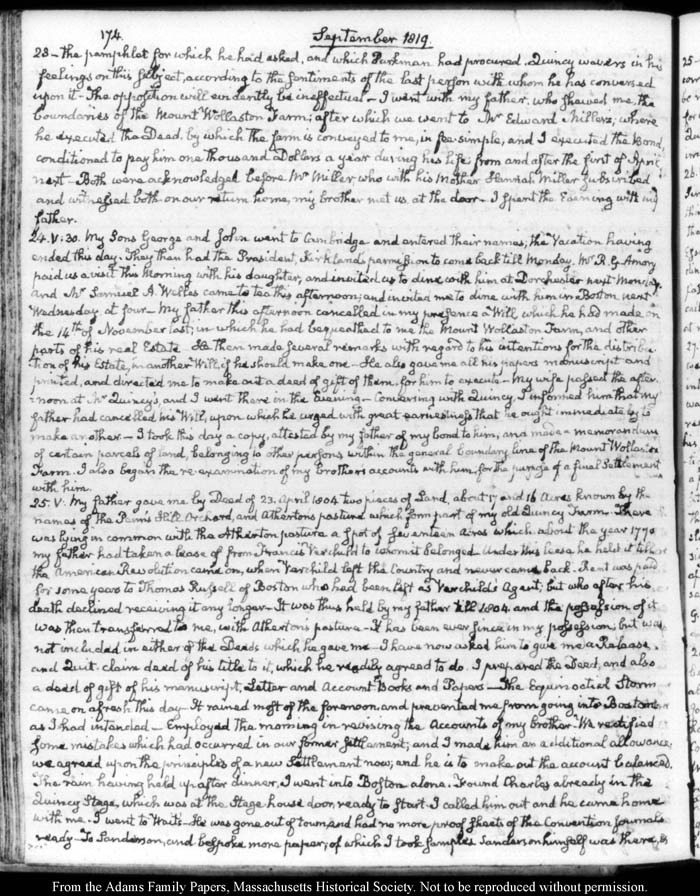 174.
September 1819.
23 - the pamphlet for which he had asked, and which Parkman had procured. Quincy wavers in his
feelings on this subject, according to the sentiments of the last person with whom he has conversed
upon it - The opposition will evidently be ineffectual - I went with my father, who shewed me, the
boundaries of the Mount Wollaston Farm; after which we went to Mr Edward Miller's, where
he executed the Deed, by which the farm is conveyed to me, in fee-simple, and I executed the Bond,
conditioned to pay him one thousand Dollars a year during his life from and after the first of April
next - Both were acknowledged before Mr Miller who with his Mother Hannah Miller subscribed
and witnessed both - on our return home, my brother met us, at the door - I spent the Evening with my
father.
24. V:30. My Sons George and John went to Cambridge and entered their names; the Vacation having
ended this day. They then had the President, Kirkland's permission to come back till Monday. Mr R. G. Amory
paid us a visit this Morning with his daughter, and invited us to dine with him at Dorchester next Monday,
and Mr Samuel A. Welles came to tea this afternoon; and invited me to dine with him in Boston next
Wednesday, at four - My father this afternoon cancelled in my presence a Will, which he had made on
the 14th of November last; in which he had bequeathed to me the Mount Wollaston Farm, and other
parts of his real Estate. He then made several remarks with regard to his intentions for the distribu-
tion of his Estate, in another Will, if he should make one - He also gave me all his papers manuscript and
printed, and directed me to make out a deed of gift of them, for him to execute - My wife passed the after-
noon at Mr Quincy's, and I went there in the Evening - Conversing with Quincy, I informed him that my
father had cancelled his Will, upon which he urged with great earnestness that he ought immediately to
make another - I took this day a copy, attested by my father of my bond to him, and made a memorandum
of certain parcels of land, belonging to other persons within the general boundary line of the Mount Wollaston
Farm. I also began the re-examination of my brother's accounts with him, for the purpose of a final settlement
with him.
25. V. My father gave me by Deed of 23. April 1804 two pieces of Land, about 17 and 16 Acres known by the
names of the Penn's Hill Orchard, and Atherton's pasture which form part of my old Quincy Farm. There
was lying in common with the Atherton pasture a spot of seventeen Acres which about the year 1770
my father had taken a lease of from Francis Varchild to whom it belonged. Under this lease he held it till
the American Revolution came on, when Varchild left the Country and never came back. Rent was paid
for some years to Thomas Russell of Boston who had been left as Varchild's Agent; but who after his
death declined receiving it any longer - It was thus held by my father till 1804. and the possession of it
was then transferred to me, with Atherton's pasture - It has been ever since in my possession; but was
not included in either of the Deeds which he gave me - I have now asked him to give me a Release,
and Quit-claim deed of his title to it, which he readily agreed to do. I prepared the Deed, and also
a deed of gift of his manuscript, Letter and Account Books and Papers - The Equinoctial Storm
came on afresh this day - It rained most of the forenoon and prevented me from going into Boston
as I had intended - Employed the morning in revising the Accounts of my brother - We rectified
some mistakes which had occurred in our former settlement; and I made him an additional allowance;
we agreed upon the principles of a new Settlement now, and he is to make out the account balanced.
The rain having held up after dinner, I went into Boston alone. Found Charles already in the
Quincy Stage, which was at the Stage house door, ready to start - I called him out and he came home
with me. I went to Wait's - He was gone out of town, and had no more proof sheets of the Convention Journals
ready - To Sanderson, and bespoke more paper; of which I took samples. Sanderson himself was there,
From the Adams Family Papers, Massachusetts Historical Society. Not to be reproduced without permission.